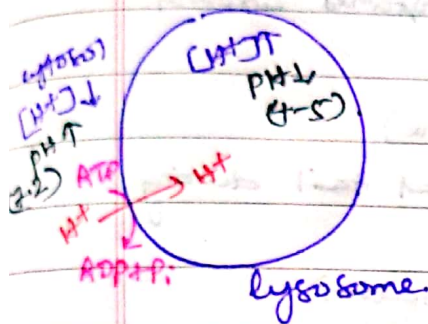 cytosol
[H+]↓
pH↑
(7.2)
[H+]↑
pH↓
(4-5)
ATP
H+ → H+
ADP+Pi
lysosome